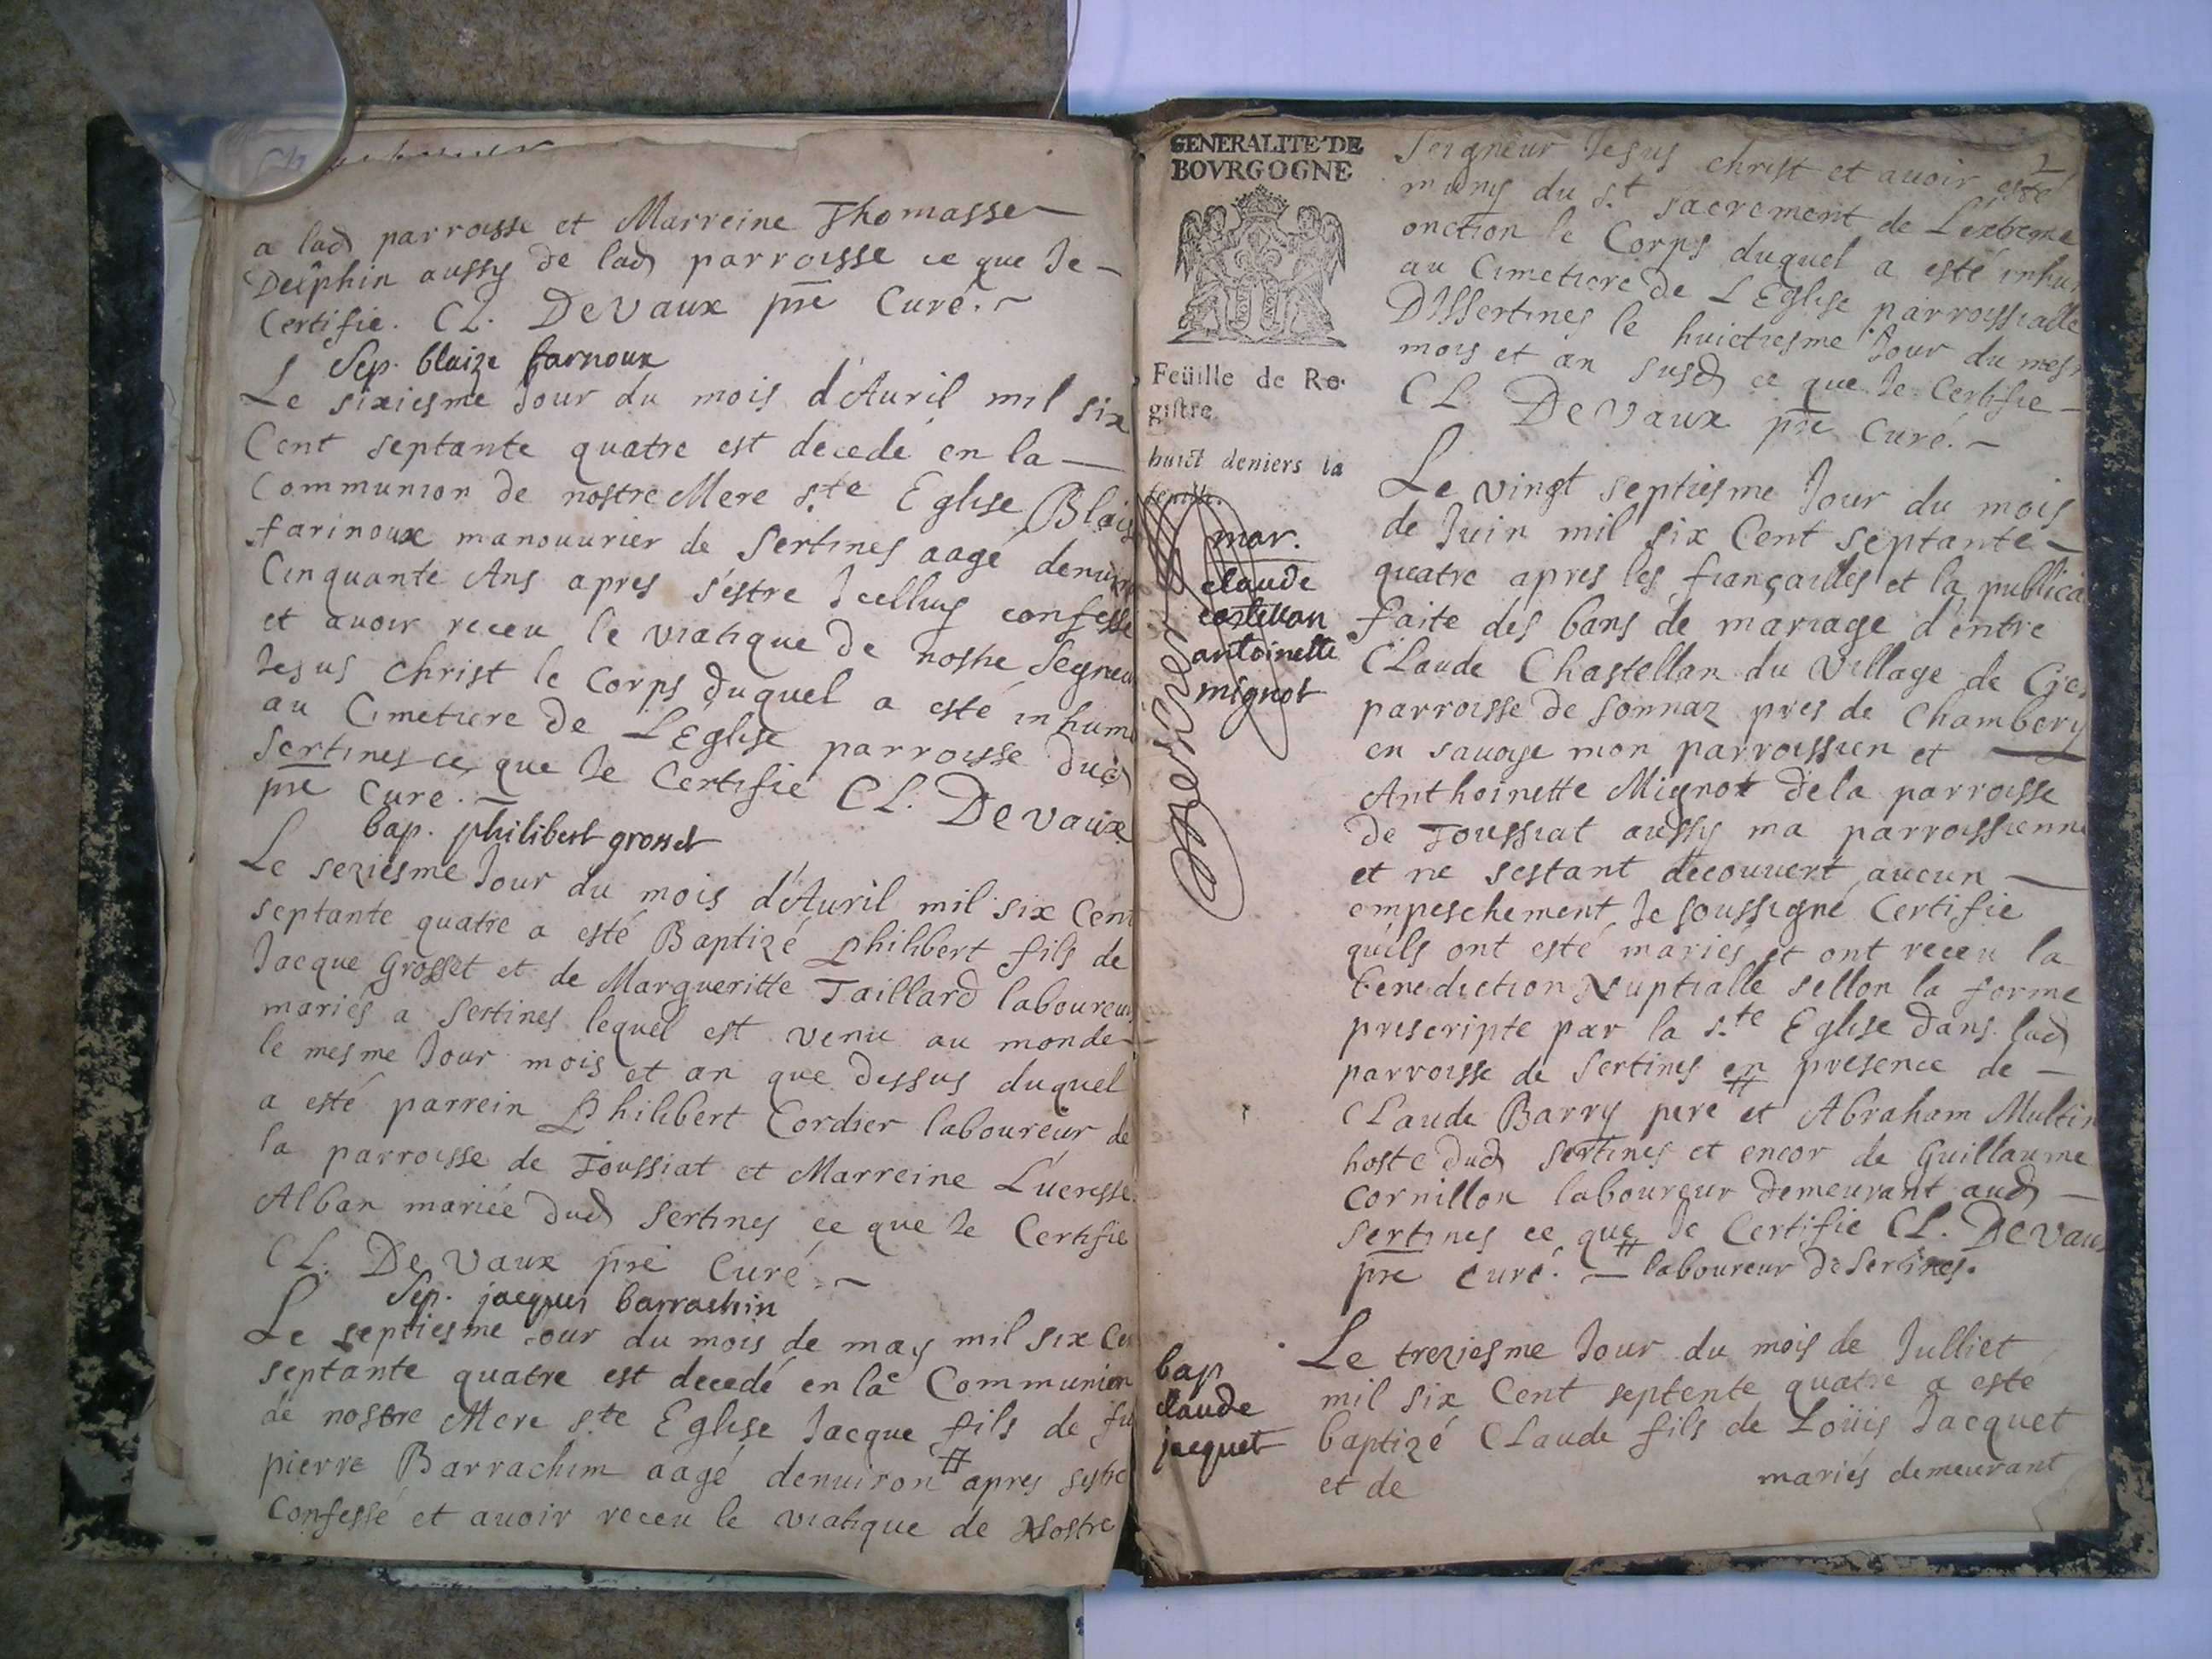 a lad parroisse et Marreine Thomasse
Delphin aussy de lad parroisse ce que Je
Certifie. CL. DeVaux pre Curé.
Sep. blaize farnoux
Le sixiesme Jour du mois d'Auril mil six
Cent septante quatre est decedé en la
Communion de nostre Mere ste Eglise Blais
farinoux manouurier de Sertines aagé denuiron
Cinquante Ans apres s'estre Jcelluy confessé
et auoir receu le viatique de nostre Segneur
Jesus Christ le Corps duquel a esté inhumé
au Cimetiere de LEglise parroisse dud
Sertines ce que Je Certifie CL. Devaux
pre Curé.
bap. philibert grosset
Le seziesme Jour du mois d'Auril mil six Cent
septante quatre a esté Baptizé Philibert fils de
Jacque Grosset et de Margueritte Taillard laboureurs
mariés a Sertines lequel est venu au monde
le mesme Jour mois et an que dessus duquel
a esté parrein Philibert Cordier laboureur de
la parroisse de Joussiat et Marreine Lucresse
Alban mariée dud Sertines ce que Je Certifie
CL. DeVaux pre Curé.
Sep. jacques barrachin
Le septiesme Jour du mois de may mil six Cen
septante quatre est decedé en la Communion
de nostre Mere ste Eglise Jacque fils de fu
pierre Barrachim aagé denuiron # apres sestre
Confessé et auoir receu le viatique de Nostre
GENERALITE DE
BOVRGOGNE
Feüille de Re-
gistre
huict deniers la
feuille.
2
Seigneur Jesus christ et auoir esté
muny du st sacrement de Lextreme
onction le Corps duquel a esté inhu
au Cimetiere de LEglise parroissialle
DIssertines le huictiesme Jour du mesm
mois et an susd ce que Je Certifie
CL DeVaux pre Curé.
mar.
claude
castellan
antoinette
mignot
Le vingt septiesme Jour du mois
de Juin mil six Cent septante
quatre apres les fiançailles et la publica
faite des bans de mariage d'entre
CLaude Chastellan du Village de
parroisse de Sonnaz pres de Chambery
en sauoye mon parroissien et
Anthoinette Mignot dela parroisse
de Joussiat aussy ma parroissienne
et ne sestant decouuert aucun
empeschement Je soussigné Certifie
quils ont esté mariés et ont receu la
benediction Nuptialle sellon la forme
prescripte par la ste Eglise dans lad
parroisse de Sertines en presence de
CLaude Barry pere # et Abraham Multin
hoste dud Sertines et encor de Guillaume
Cornillon laboureur demeurant aud
Sertines ce que Je Certifie CL. DeVaux
pre Curé. # laboureur de Sertines.
bap
claude
jacquet
Le treziesme Jour du mois de Julliet
mil six Cent septente quatre a esté
baptizé CLaude fils de Loüis Jacquet
et de mariés demeurant